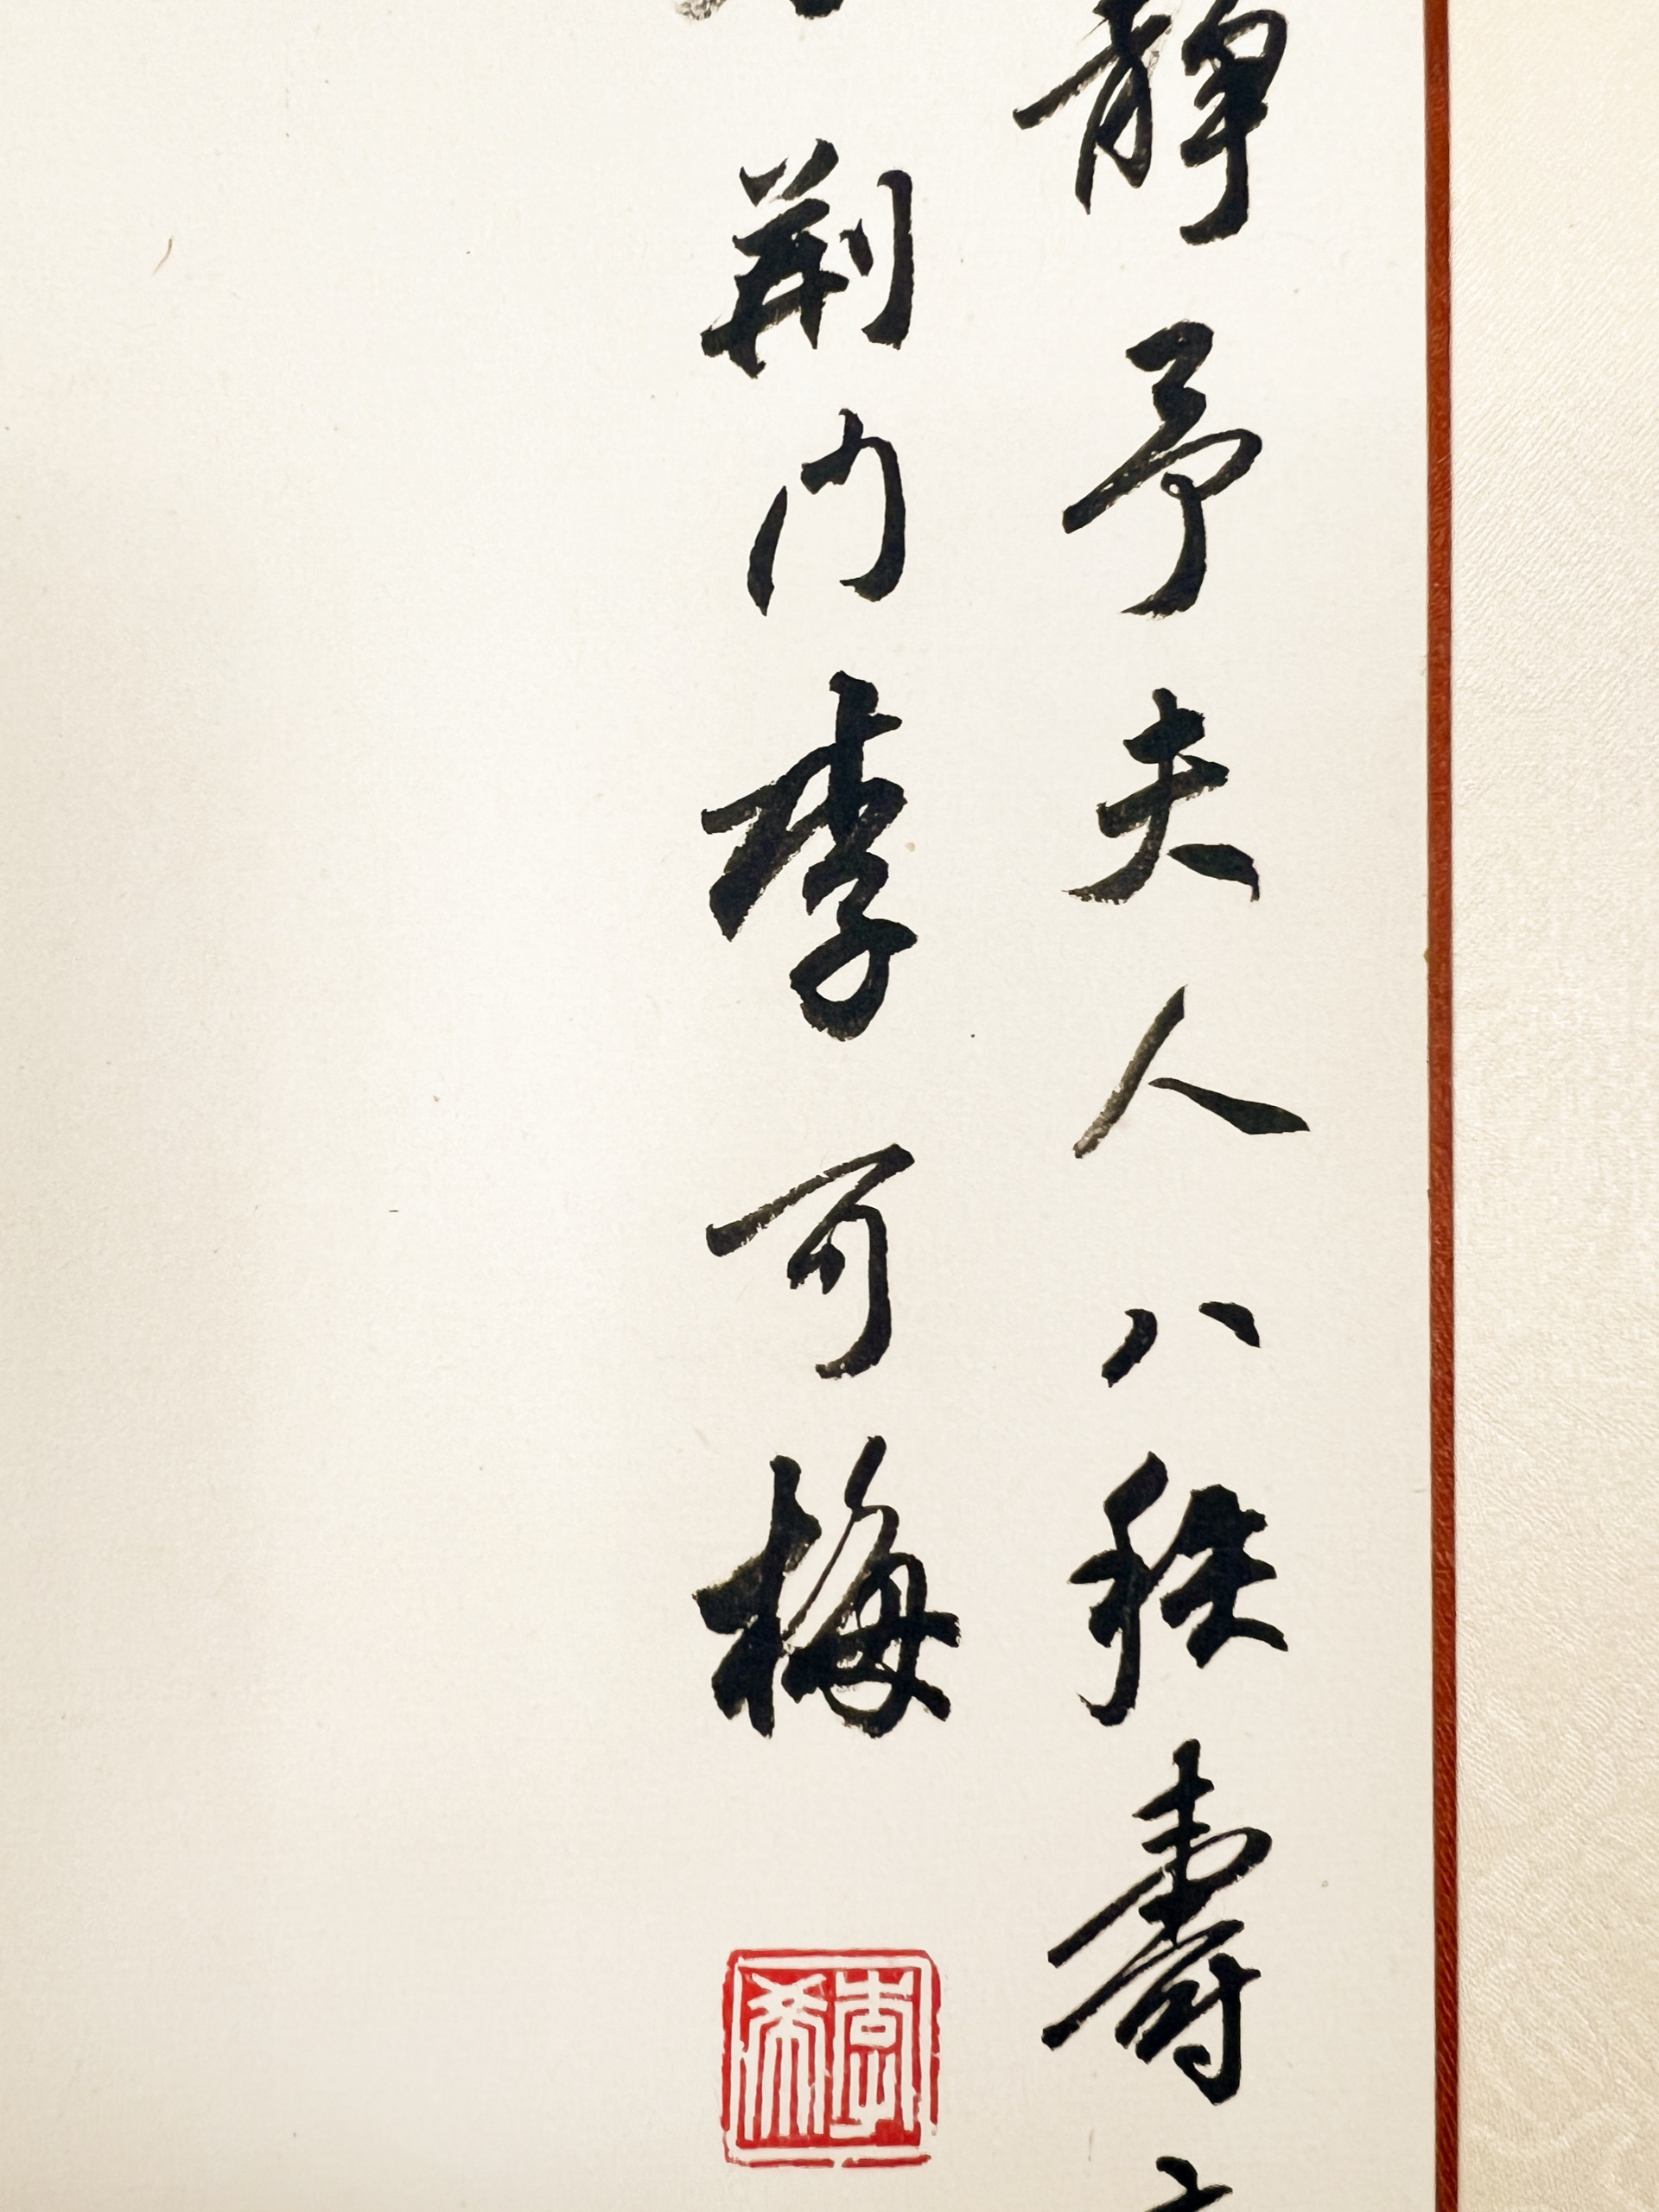 靜予夫人八秩壽
荆门李可梅